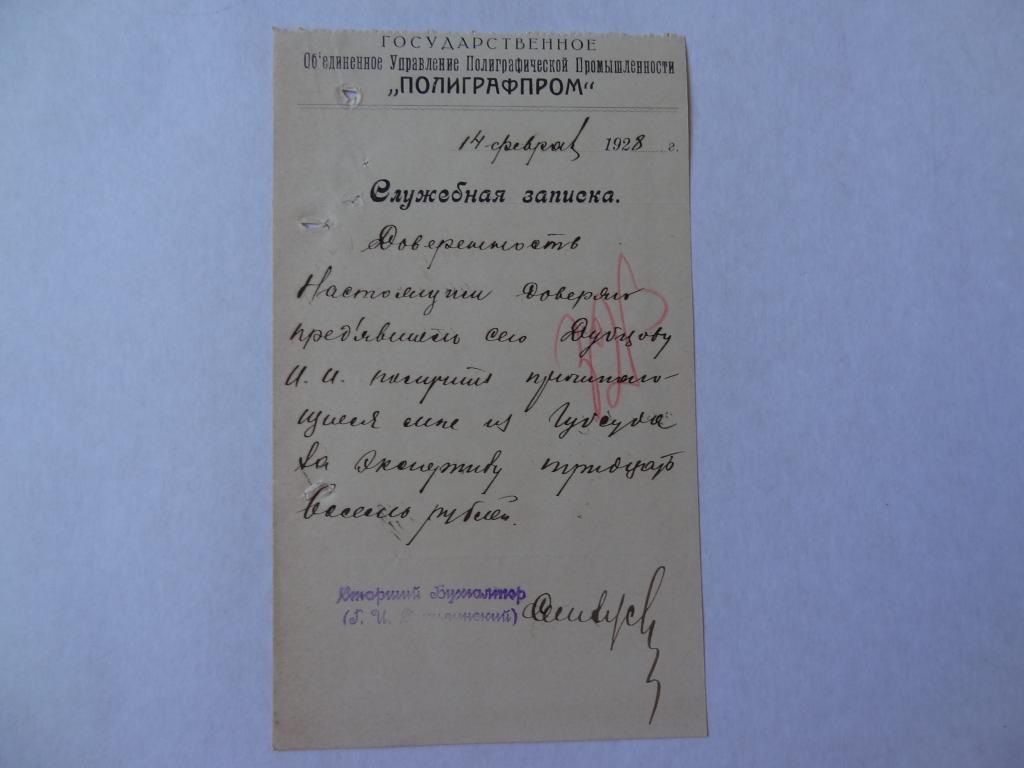 ГОСУДАРСТВЕННОЕ
Об'единенное Управление Полиграфической Промышленности
„ПОЛИГРАФПРОМ“
14 февраля 1928 г.
Служебная записка.
Доверенность
Настоящим доверяю
пред'явителю сего Дубцову
И. И. получить причитаю-
щиеся мне из Губсуда
за экспертизу тридцать
восемь рублей.
Старший Бухгалтер
(Г. И.